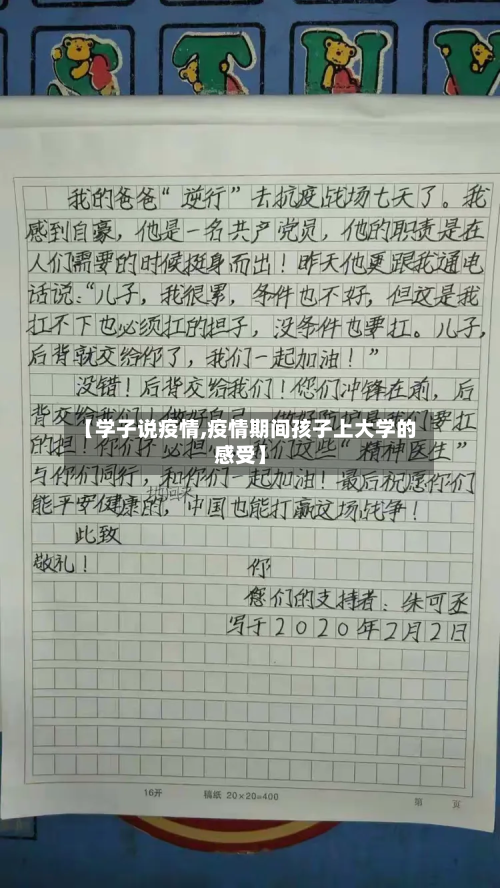 我的爸爸“逆行”去抗疫战场七天了。我
感到自豪，他是一名共产党员，他的职责是在
人们需要的时候挺身而出！昨天他更跟我通电
话说：“儿子，我很累，条件也不好，但这是我
扛不下也必须扛的担子，没条件也要扛。儿子，
后背就交给你了，我们一起加油！”
没错！后背交给我们！您们冲锋在前，后
背交给我们！做好自己，做好防护是我们要扛
【学子说疫情,疫情期间孩子上大学的
感受】
的担！你们不必担 们这些“精神医生”
与你们同行，和你们一起加油！最后祝愿你们
能平安健康的，中国也能打赢这场战争！
此致
敬礼！
你
您们的支持者：朱可丞
写于2020年2月2日
16开 稿纸 20×20=400 第 页